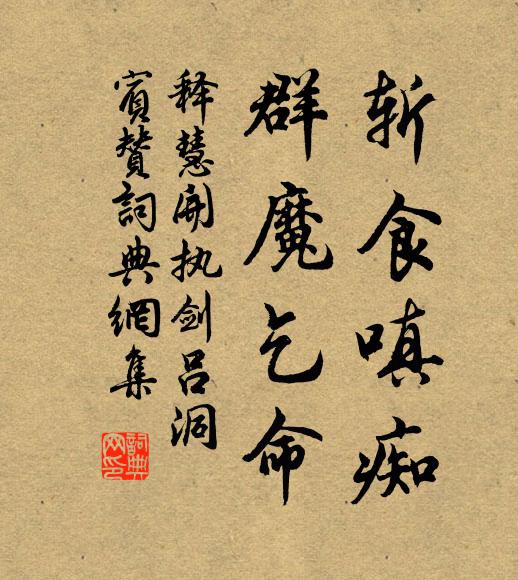 斩食嗔痴
群魔乞命
释慧开执剑吕洞
宾赞词典網集
詞典
网印